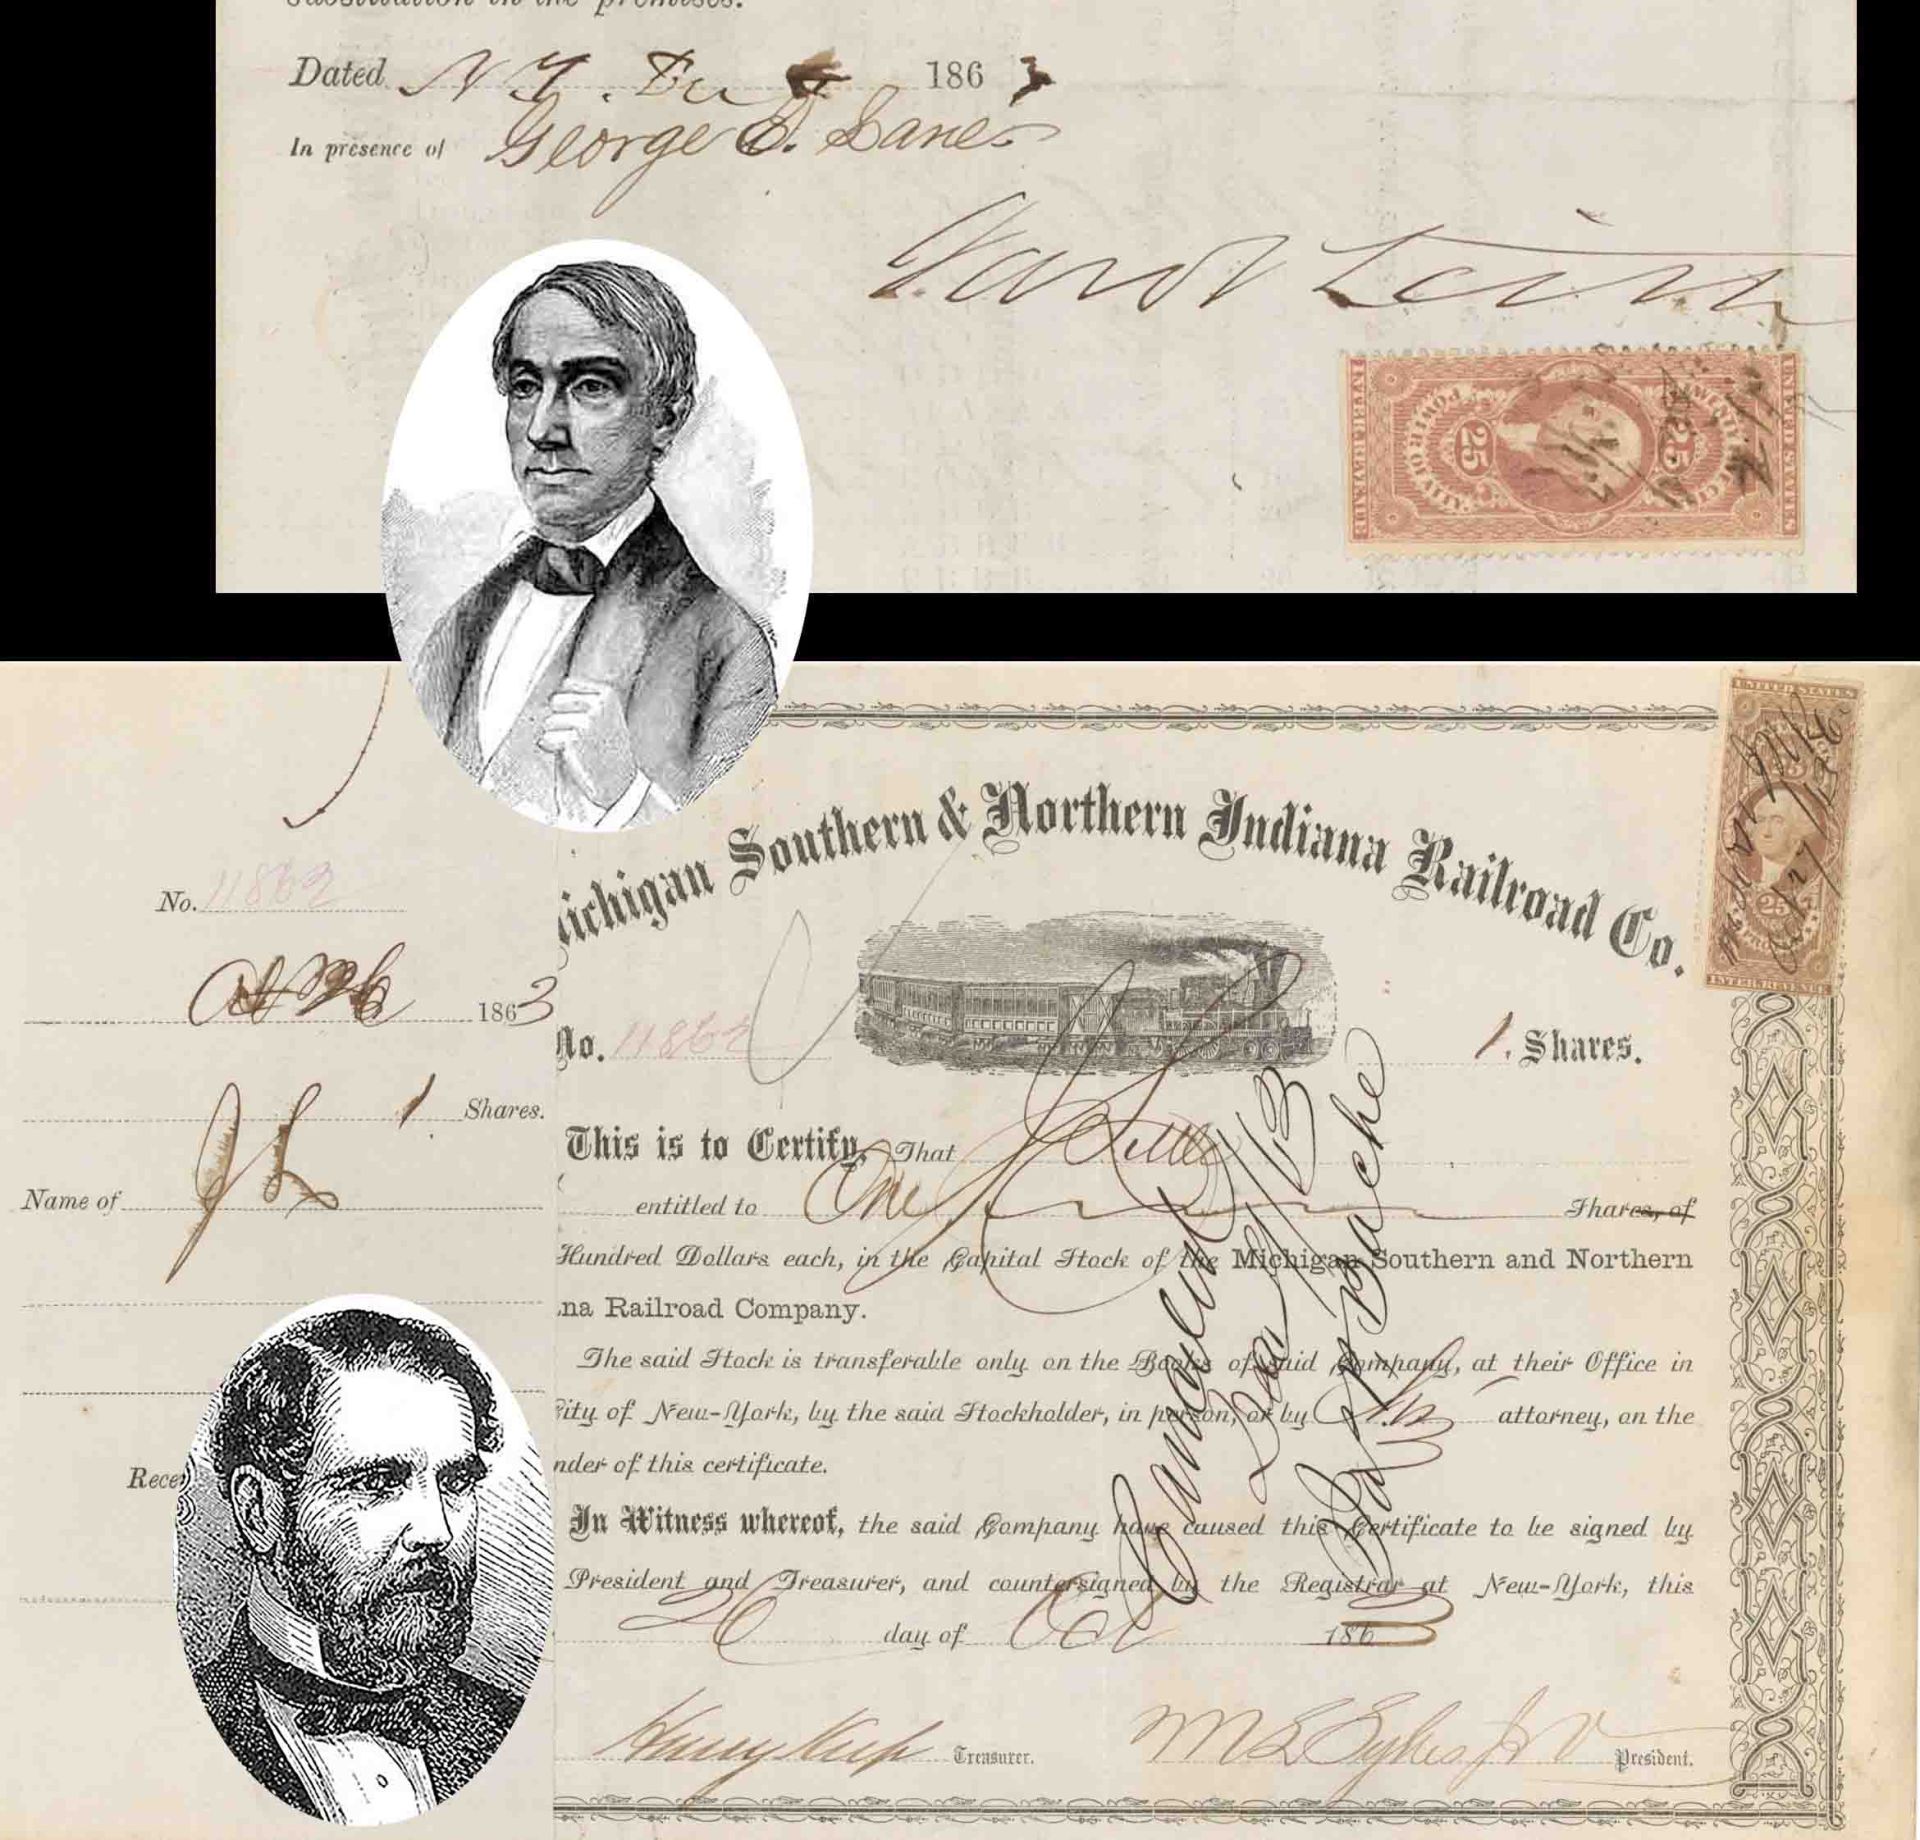 substitution in the premises.
Dated N.Y. Dec 1863
In presence of George D. Lane
UNITED STATES
POWER OF ATTORNEY
25 25
INTER. REVENUE
UNITED STATES
25
INTER. REVENUE
Michigan Southern & Northern Indiana Railroad Co.
No. 11862
1863
1 Shares.
Name of J L
Rece
No. 11862
1. Shares.
This is to Certify, That
entitled to One Shares, of
Hundred Dollars each, in the Capital Stock of the Michigan Southern and Northern
na Railroad Company.
The said Stock is transferable only on the Books of said Company, at their Office in
City of New-York, by the said Stockholder, in person, or by attorney, on the
nder of this certificate.
In Witness whereof, the said Company have caused this Certificate to be signed by
President and Treasurer, and countersigned by the Registrar at New-York, this
26 day of Oct 1863
Cancelled
Henry Keep Treasurer.
M L Sykes Jr V President.